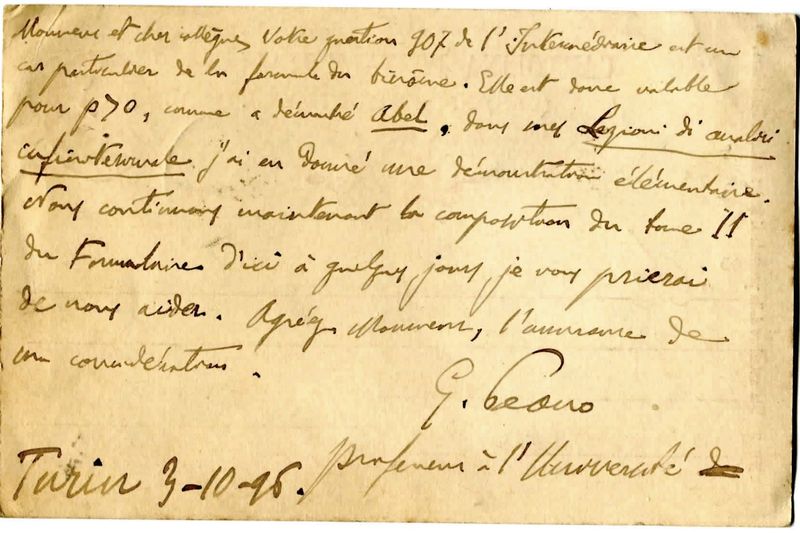 Monsieur et cher collègue, Votre question 907 de l'Intermédiaire est un
cas particulier de la formule du binôme. Elle est donc valable
pour p>0, comme a démontré Abel, dans mes Lezioni di analisi
infinitesimale j'ai en donné une démonstration élémentaire.
Nous continuons maintenant la composition du tome II
du Formulaire. D'ici à quelques jours, je vous prierai
de nous aider. Agréez Monsieur, l'assurance de
ma considération.
G. Peano
Turin 3-10-96. professeur à l'Université